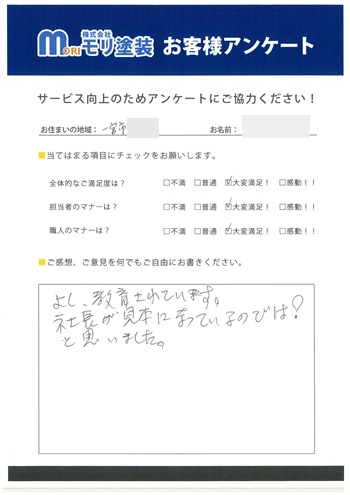 MORI 株式会社 モリ塗装 お客様アンケート
サービス向上のためアンケートにご協力ください！
お住まいの地域： 一宮市 お名前：
■当てはまる項目にチェックをお願いします。
全体的なご満足度は？ □不満 □普通 ☑大変満足！ □感動！！
担当者のマナーは？ □不満 □普通 ☑大変満足！ □感動！！
職人のマナーは？ □不満 □普通 ☑大変満足！ □感動！！
■ご感想、ご意見を何でもご自由にお書きください。
よし、教育されています。
社長が見本になっているのでは？
と思いました。